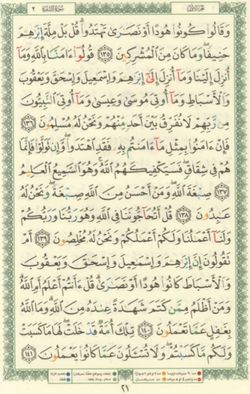 وَقَالُوا۟ كُونُوا۟ هُودًا أَوْ نَصَـٰرَىٰ تَهْتَدُوا۟ ۗ قُلْ بَلْ مِلَّةَ إِبْرَٰهِـۧمَ
حَنِيفًا ۖ وَمَا كَانَ مِنَ ٱلْمُشْرِكِينَ ﴿١٣٥﴾ قُولُوٓا۟ ءَامَنَّا بِٱللَّهِ وَمَآ
أُنزِلَ إِلَيْنَا وَمَآ أُنزِلَ إِلَىٰٓ إِبْرَٰهِـۧمَ وَإِسْمَـٰعِيلَ وَإِسْحَـٰقَ وَيَعْقُوبَ
وَٱلْأَسْبَاطِ وَمَآ أُوتِىَ مُوسَىٰ وَعِيسَىٰ وَمَآ أُوتِىَ ٱلنَّبِيُّونَ
مِن رَّبِّهِمْ لَا نُفَرِّقُ بَيْنَ أَحَدٍ مِّنْهُمْ وَنَحْنُ لَهُۥ مُسْلِمُونَ ﴿١٣٦﴾
فَإِنْ ءَامَنُوا۟ بِمِثْلِ مَآ ءَامَنتُم بِهِۦ فَقَدِ ٱهْتَدَوا۟ ۖ وَّإِن تَوَلَّوْا۟ فَإِنَّمَا
هُمْ فِى شِقَاقٍ ۖ فَسَيَكْفِيكَهُمُ ٱللَّهُ ۚ وَهُوَ ٱلسَّمِيعُ ٱلْعَلِيمُ
﴿١٣٧﴾ صِبْغَةَ ٱللَّهِ ۖ وَمَنْ أَحْسَنُ مِنَ ٱللَّهِ صِبْغَةً ۖ وَنَحْنُ لَهُۥ
عَـٰبِدُونَ ﴿١٣٨﴾ قُلْ أَتُحَآجُّونَنَا فِى ٱللَّهِ وَهُوَ رَبُّنَا وَرَبُّكُمْ
وَلَنَآ أَعْمَـٰلُنَا وَلَكُمْ أَعْمَـٰلُكُمْ وَنَحْنُ لَهُۥ مُخْلِصُونَ ﴿١٣٩﴾ أَمْ
تَقُولُونَ إِنَّ إِبْرَٰهِـۧمَ وَإِسْمَـٰعِيلَ وَإِسْحَـٰقَ وَيَعْقُوبَ
وَٱلْأَسْبَاطَ كَانُوا۟ هُودًا أَوْ نَصَـٰرَىٰ ۗ قُلْ ءَأَنتُمْ أَعْلَمُ أَمِ ٱللَّهُ ۗ
وَمَنْ أَظْلَمُ مِمَّن كَتَمَ شَهَـٰدَةً عِندَهُۥ مِنَ ٱللَّهِ ۗ وَمَا ٱللَّهُ
بِغَـٰفِلٍ عَمَّا تَعْمَلُونَ ﴿١٤٠﴾ تِلْكَ أُمَّةٌ قَدْ خَلَتْ ۖ لَهَا مَا كَسَبَتْ
وَلَكُم مَّا كَسَبْتُمْ ۖ وَلَا تُسْـَٔلُونَ عَمَّا كَانُوا۟ يَعْمَلُونَ ﴿١٤١﴾
٢١